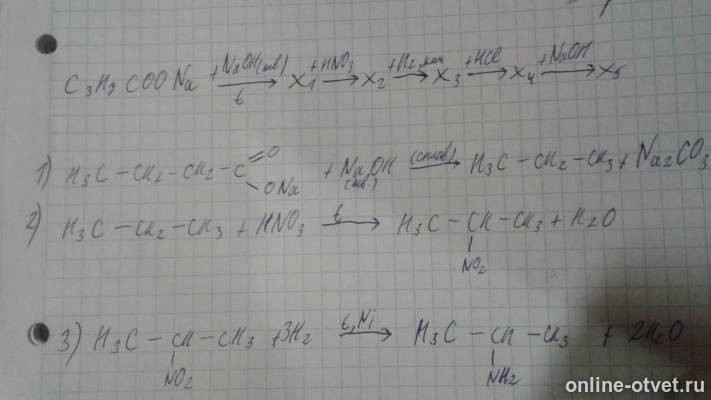 C3H7COONa +NaOH(тв) t → X1 +HNO3 → X2 +H2, кат → X3 +HCl → X4 +NaOH → X5
1) H3C – CH2 – CH2 – C =O ONa + NaOH (тв.) (сплав) → H3C – CH2 – CH3 + Na2CO3
2) H3C – CH2 – CH3 + HNO3 t → H3C – CH – CH3 + H2O
NO2
3) H3C – CH – CH3 + 3H2 t, Ni → H3C – CH – CH3 + 2H2O
NO2 NH2
online-otvet.ru